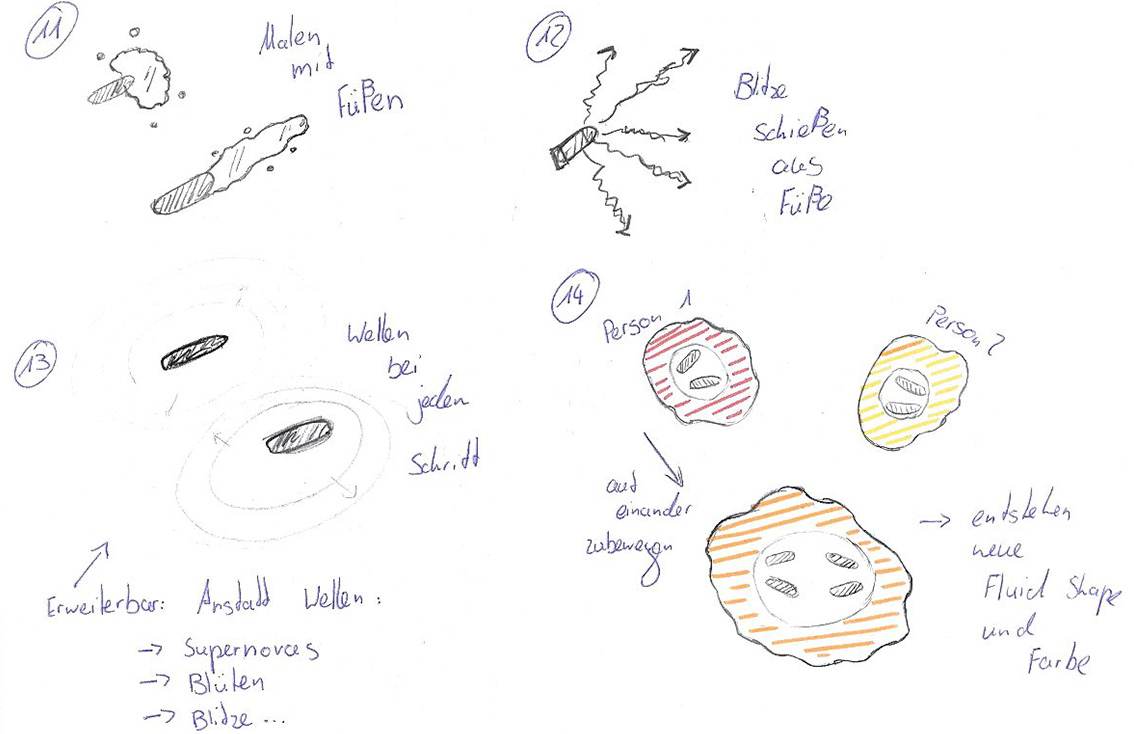 11
Malen
mit
Füßen
12
Blitze
schießen
aus
Füße
13
Wellen
bei
jeden
Schritt
Erweiterbar: Anstatt Wellen:
→ Supernovas
→ Blüten
→ Blitze ...
14
Person 1
Person 2
auf
einander
zubewegen
→ entstehen
neue
Fluid Shape
und
Farbe